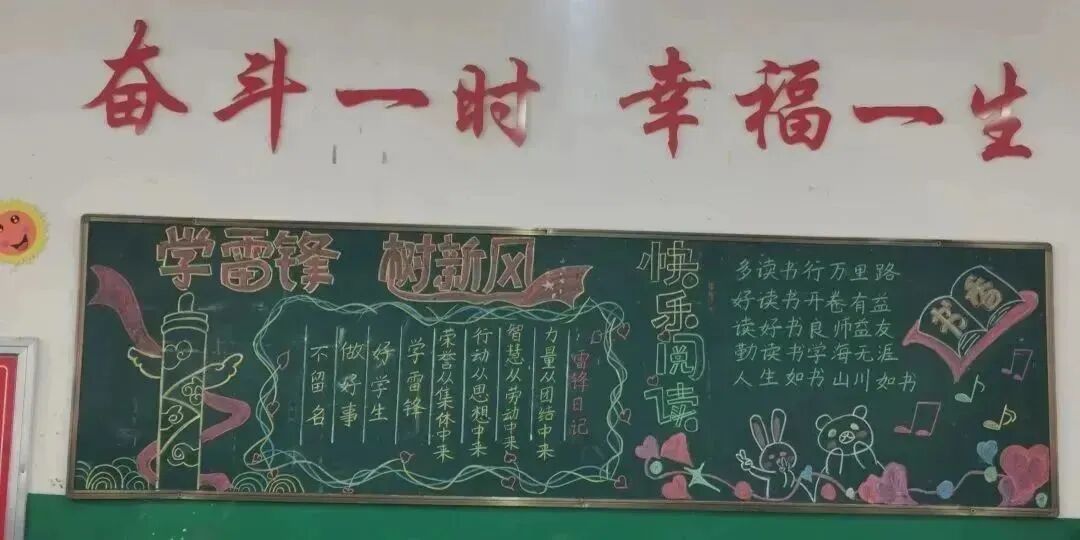 奋斗一时 幸福一生
学雷锋 树新风
雷锋日记:
力量从团结中来
智慧从劳动中来
行动从思想中来
荣誉从集体中来
学雷锋
好学生
做好事
不留名
快乐阅读
多读书行万里路
好读书开卷有益
读好书良师益友
勤读书学海无涯
人生如书山川如书
书香